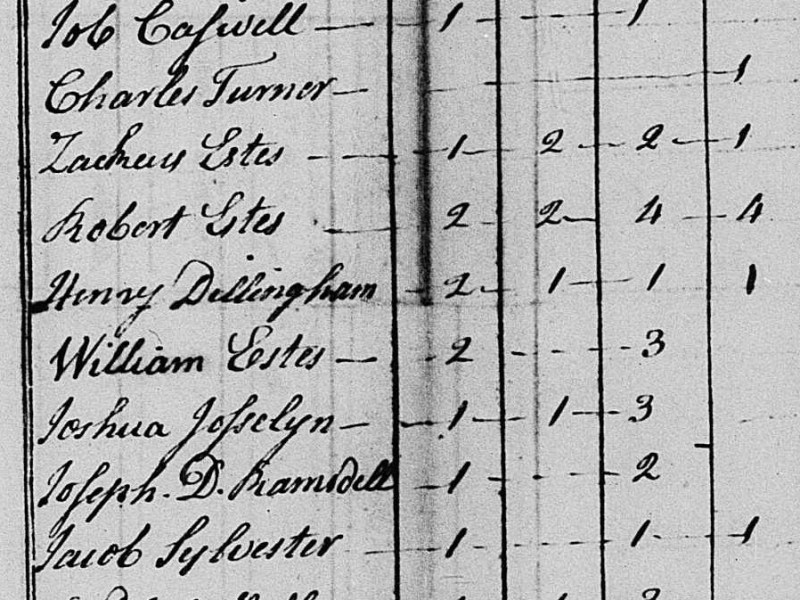 Job Caswell — 1 - - - 1
Charles Turner — 1
Zacheus Estes — 1 2 2 1
Robert Estes — 2 2 4 4
Henry Dillingham 2 1 1 1
William Estes — 2 - - - 3
Joshua Josselyn — 1 1 3
Joseph. D. Ramsdell 1 - - - 2
Jacob Sylvester — 1 - - - 1 1